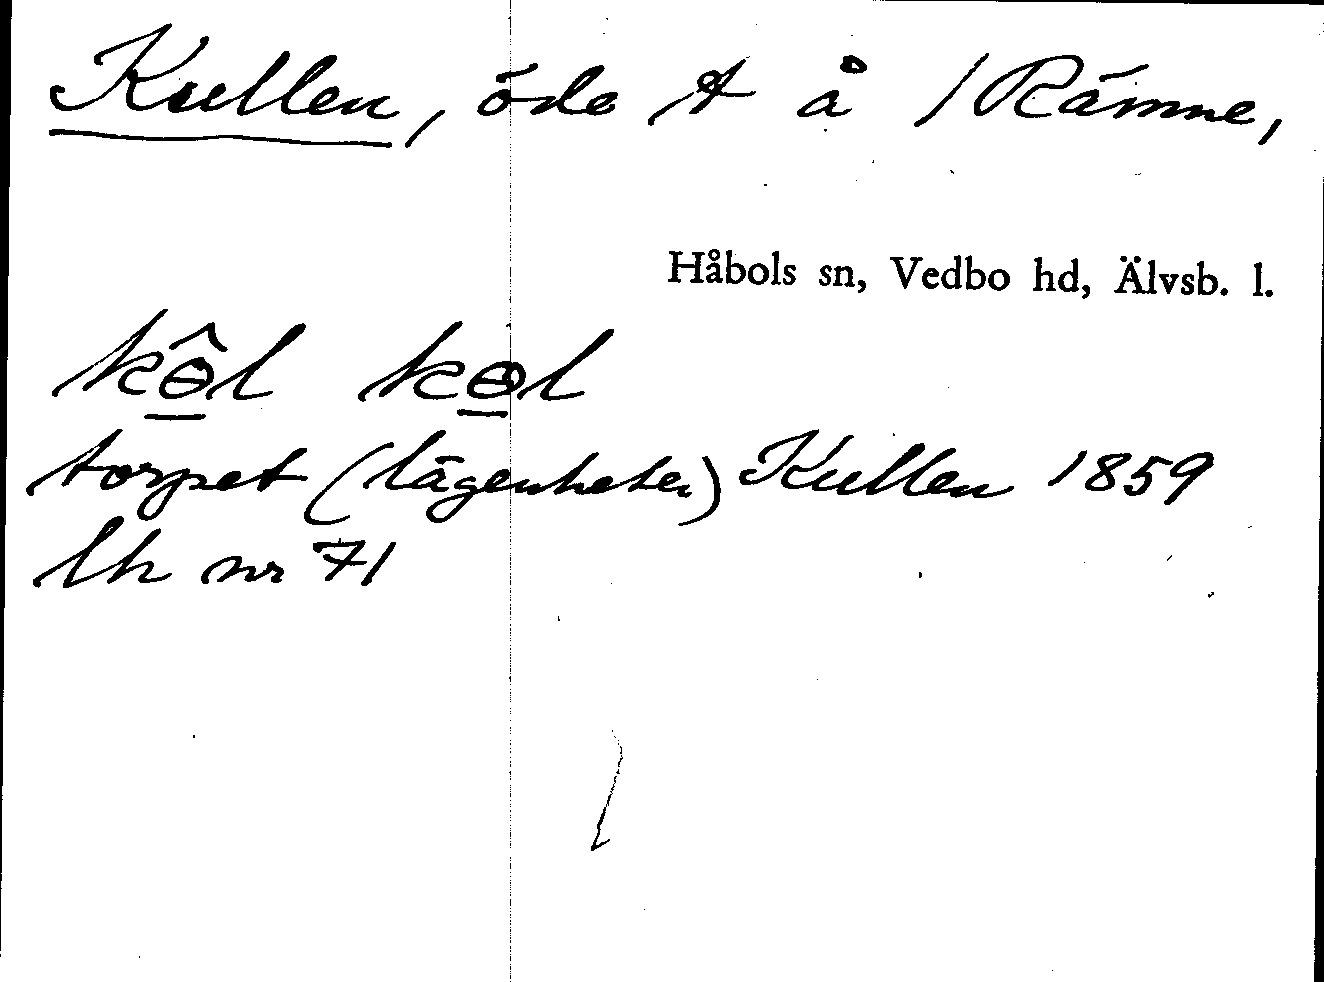 Kullen, öde t å 1 Rämne,
Håbols sn, Vedbo hd, Älvsb. l.
kɵ̱̂l kɵ̱l
torpet (lägenheten) Kullen 1859
lh nr 71